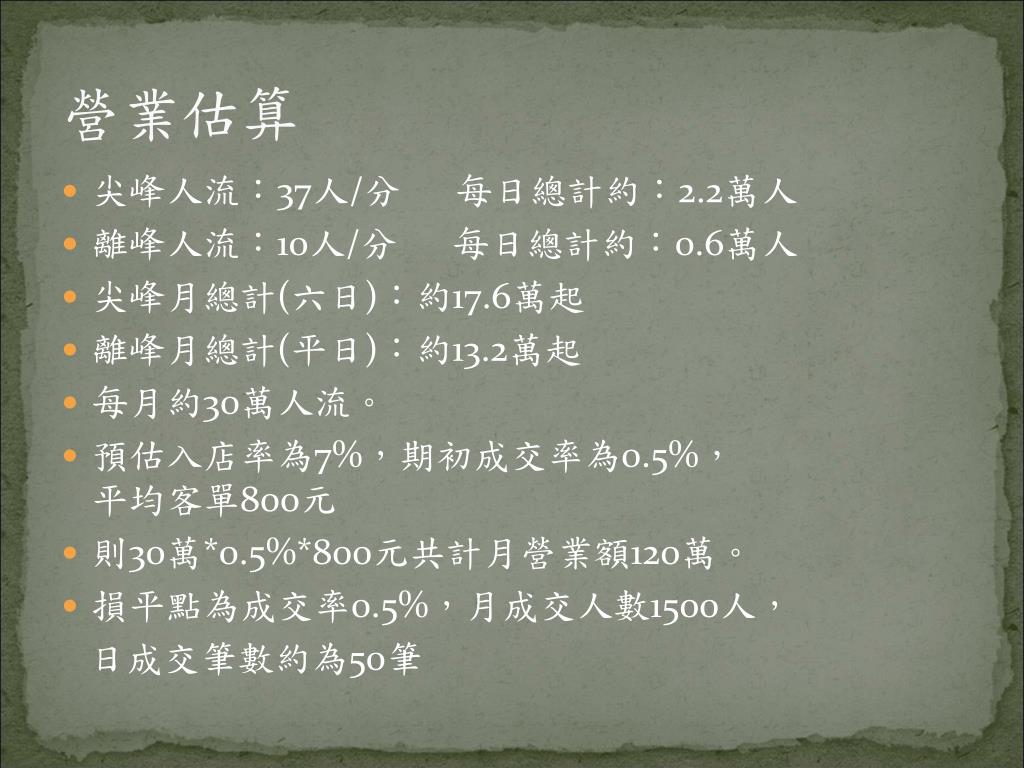 營業估算
尖峰人流：37人/分 每日總計約：2.2萬人
離峰人流：10人/分 每日總計約：0.6萬人
尖峰月總計(六日)：約17.6萬起
離峰月總計(平日)：約13.2萬起
每月約30萬人流。
預估入店率為7%，期初成交率為0.5%，
平均客單800元
則30萬*0.5%*800元共計月營業額120萬。
損平點為成交率0.5%，月成交人數1500人，
日成交筆數約為50筆